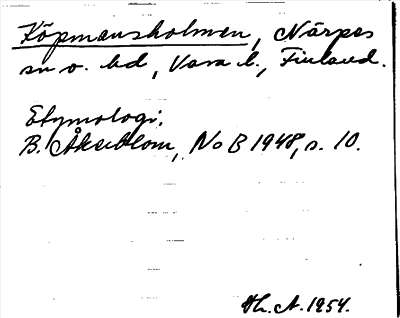 Köpmansholmen, Närpes
sn o. hd, Vasa l., Finland.
Etymologi:
B. Åkerblom, NoB 1948, s. 10.
Th. A. 1954.